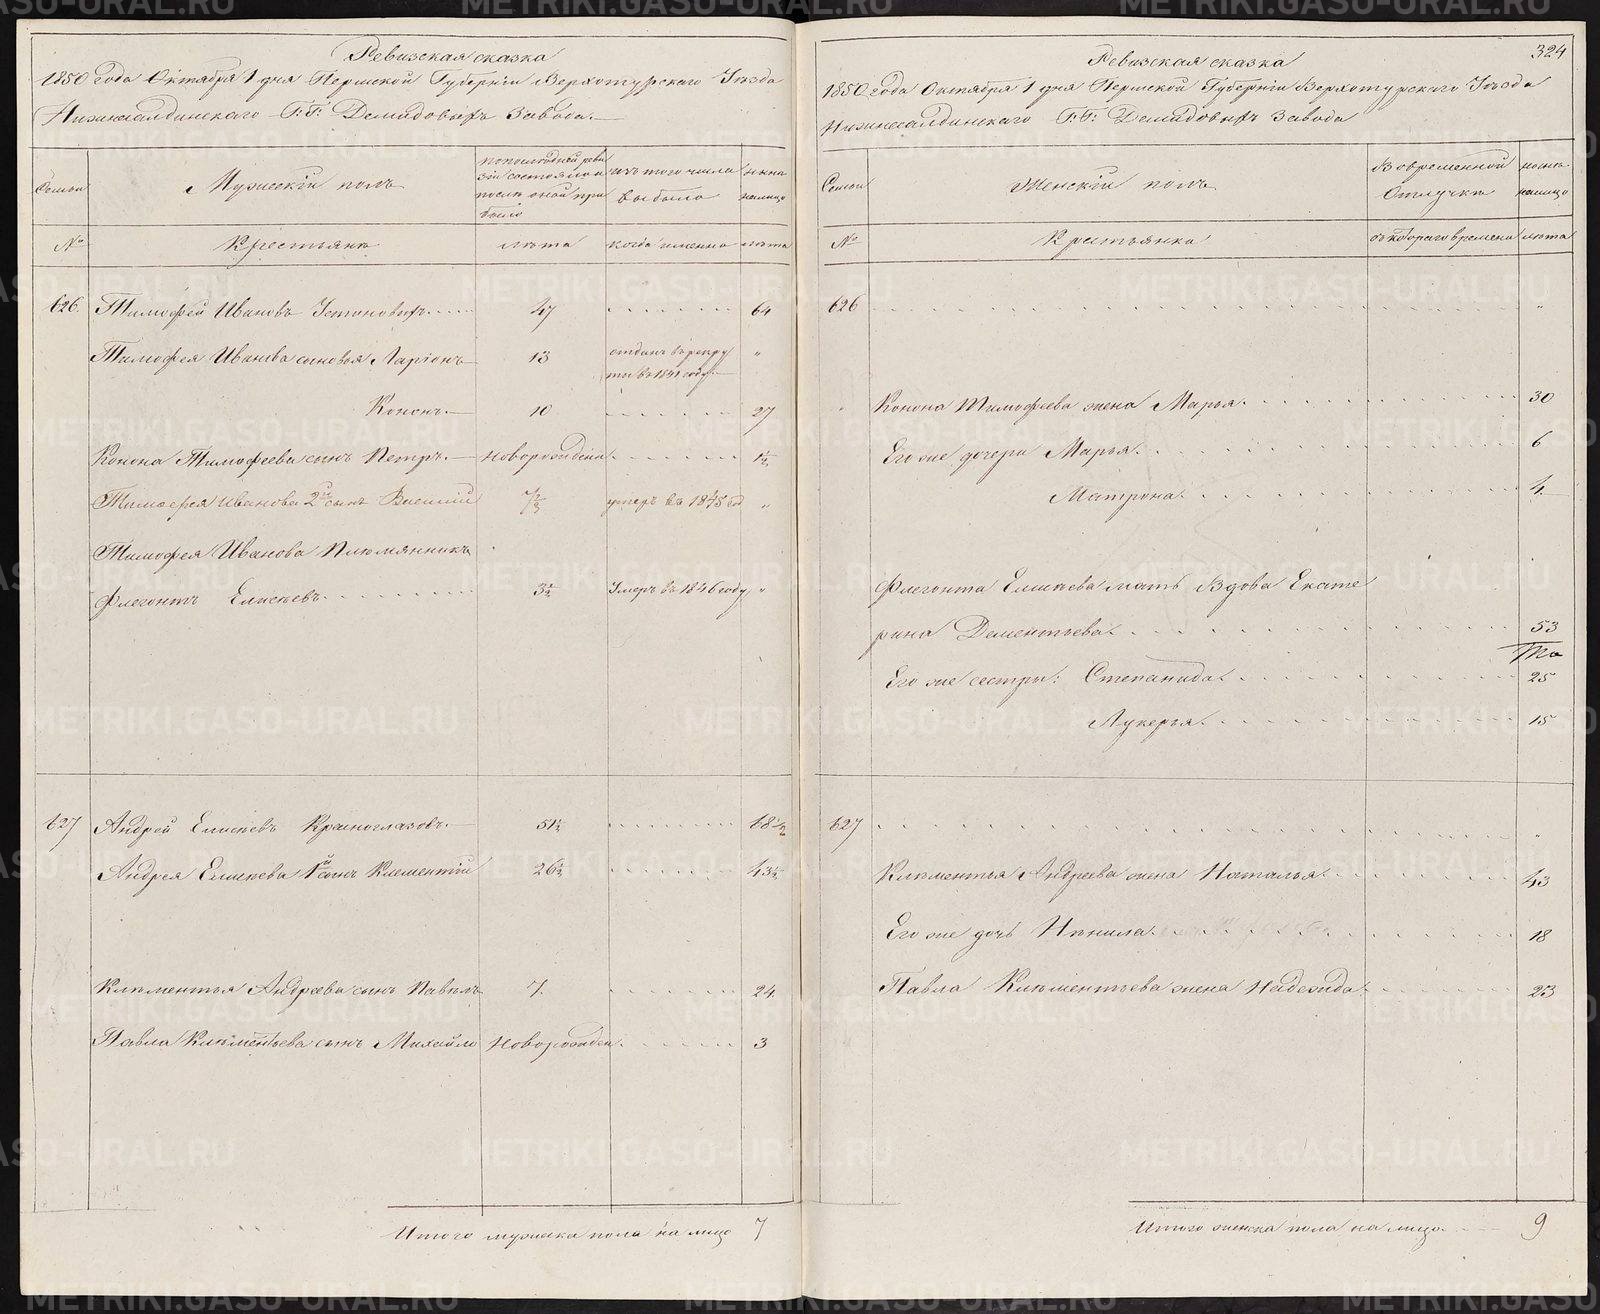 Ревизская сказка
1850 года Октября 1 дня Пермской Губернiи Верхотурскаго Уѣзда
Нижнесалдинскаго Г.Г. Демидовыхъ Завода.
Семьи
Мужескiй полъ
По последней реви
зiи состояло и
после оной при
было
Изъ того числа
выбыло
Ныне
на лицо
№
Крестьяне
лѣта
когда именно
лѣта
626.
Тимофей Ивановъ Устиновыхъ
47
64
Тимофея Иванова сыновья Ларiонъ
13
отданъ въ рекру
ты въ 1841 году
"
Кононъ.
10
27
Конона Тимофеева сынъ Петръ.
новорожденъ
1½
Тимофея Иванова 2й сынъ Василiй
умеръ въ 1845 год
"
Тимофея Иванова племянникъ
Флегонтъ Елисѣевъ
3½
Умеръ въ 1846 году
"
627
Андрей Елисѣевъ Красноглазовъ.
51½
68½
Андрея Елисѣева 1й сынъ Клементiй
26½
43½
Клементья Андреева сынъ Павелъ
7.
24.
Павла Клементьева сынъ Михайло
Новорожден.
3
Итого мужеска пола на лицо 7
324
Ревизская сказка
1850 года Октября 1 дня Пермской Губернiи Верхотурскаго Уѣзда
Нижнесалдинскаго Г.Г. Демидовыхъ Завода
Семьи
Женскiй полъ
Во временной
отлучке
ныне
на лицо
№
Крестьянка
съ котораго времени
лѣта
626
"
Конона Тимофеева жена Марья.
30
Его же дочери Марья.
6
Матрона.
4.
Флегонта Елисѣева мать вдова Екате
рина Дементьева.
53
Его же сестры: Степанида.
25
Лукерья.
15
627
"
Клементья Андреева жена Наталья.
43
Его же дочь Ненила.
18
Павла Клементьева жена Надежда.
23
Итого женска пола на лицо 9
METRIKI.GASO-URAL.RU